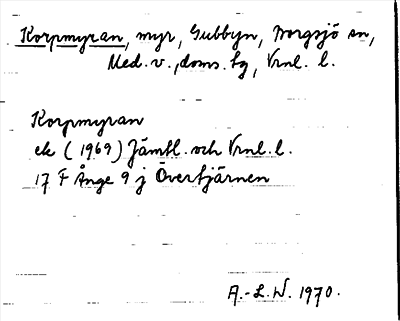 Korpmyran, myr, Gubbyn, Borgsjö sn,
Med. v., doms. tg, Vrnl. l.
Korpmyran
ek (1969) Jämtl. och Vrnl. l.
17 F Ånge 9 j Övertjärnen
A.-L. W. 1970.